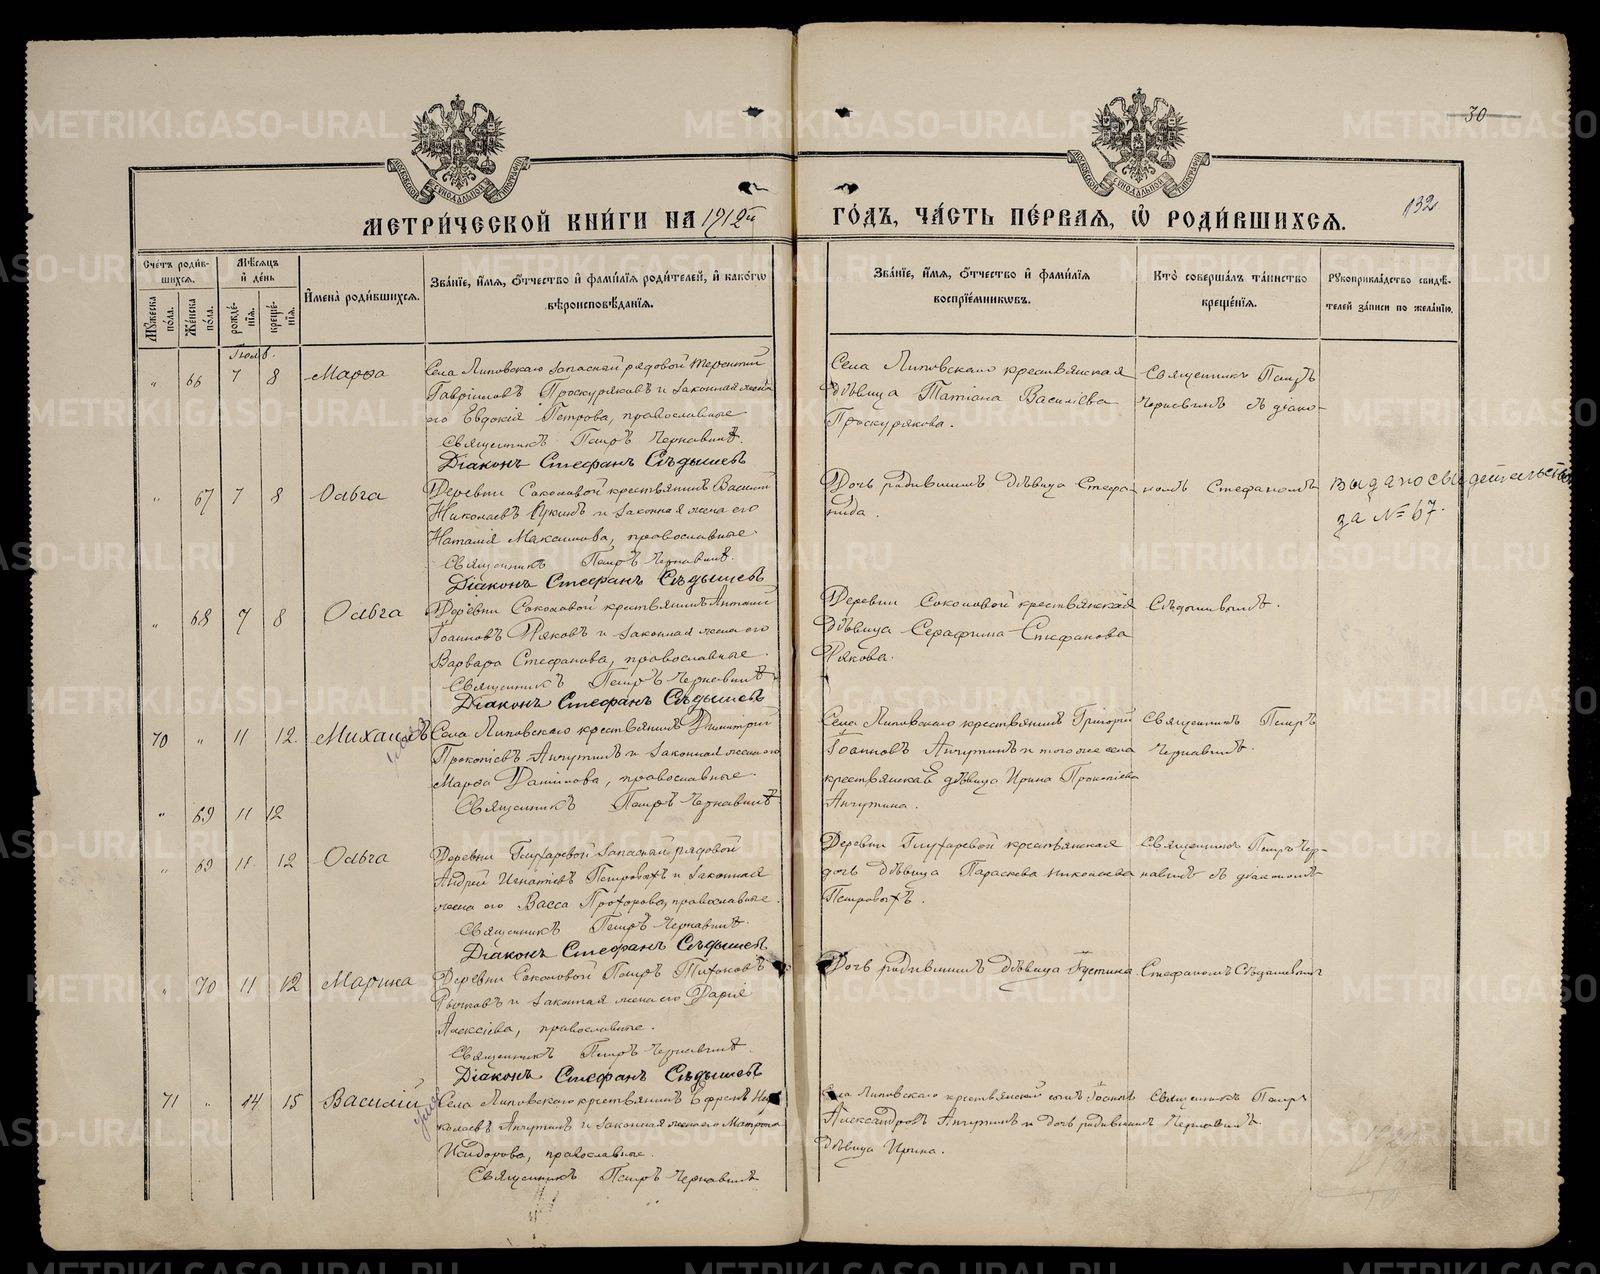 30
132
МЕТРИ́ЧЕСКОЙ КНИ́ГИ НА 1912й ГО́ДЪ, ЧА́СТЬ ПЕ́РВАЯ, Ѡ РОДИ́ВШИХСЯ.
Сче́тъ роди́вшихся.
Му́жеска по́ла.
Же́нска по́ла.
Мѣ́сяцъ и де́нь
рожде́нія.
креще́нія.
Имена̀ роди́вшихся.
Зва́ніе, и́мя, о́тчество и фами́лія роди́телей, и како́гѡ
вѣроисповѣ́данія.
Зва́ніе, и́мя, о́тчество и фами́лія
воспріе́мниковъ.
Кто̀ соверша́лъ та́инство
креще́нія.
Рукоприкла́дство свидѣ́-
телей за́писи по жела́нію.
Іюль.
" 66 7 8 Марѳа
Села Липовскаго запасный рядовой Терентий
Гавріиловъ Проскуряковъ и законная жена
его Евдокія Петрова, православные
Священникъ Петръ Чернавинъ.
Діаконъ Стефанъ Сѣдышевъ
Села Липовскаго крестьянская
дѣвица Татіана Василіева
Проскурякова.
Священникъ Петръ
Чернавинъ съ діако-
" 67 7 8 Ольга
Деревни Соколовой крестьянинъ Василій
Николаевъ и законная жена его
Наталія Максимова, православные.
Священникъ Петръ Чернавинъ.
Діаконъ Стефанъ Сѣдышевъ
Дочь родившихъ дѣвица Стефа-
нида.
номъ Стефаномъ
выдано свидетельство
за № 67.
" 68 7 8 Ольга
Деревни Соколовой крестьянинъ Антоній
Іоанновъ Ряковъ и законная жена его
Варвара Стефанова, православные.
Священникъ Петръ Чернавинъ.
Діаконъ Стефанъ Сѣдышевъ
Деревни Соколовой крестьянская
дѣвица Серафима Стефанова
Рякова.
Сѣдышевымъ.
70 " 11 12 Михаилъ
Села Липовскаго крестьянинъ Димитрій
Прокопіевъ Анчутинъ и законная жена его
Марѳа Данилова, православные.
Священникъ Петръ Чернавинъ
Села Липовскаго крестьянинъ Григорій
Іоанновъ Анчутинъ и того же села
крестьянская дѣвица Ирина Прокопіева
Анчутина.
Священникъ Петръ
Чернавинъ.
" 69 11 12
" 69 11 12 Ольга
Деревни Глухаревой запасный рядовой
Андрей Игнатіевъ Петровыхъ и законная
жена его Васса Прохорова, православные.
Священникъ Петръ Чернавинъ.
Діаконъ Стефанъ Сѣдышевъ
Деревни Глухаревой крестьянская
дочь дѣвица Параскева Николаева
Петровыхъ.
Священникъ Петръ Чер-
навинъ съ діакономъ
" 70 11 12 Марина
Деревни Соколовой Петръ Тихоновъ
и законная жена его Дарія
Алексіева, православные.
Священникъ Петръ Чернавинъ.
Діаконъ Стефанъ Сѣдышевъ
Дочь родившихъ дѣвица Іустина
Стефаномъ Сѣдышевымъ
71 " 14 15 Василій
Села Липовскаго крестьянинъ Ефремъ Ни-
колаевъ Анчутинъ и законная жена его Матрона
Исидорова, православные.
Священникъ Петръ Чернавинъ
Села Липовскаго крестьянскій сынъ Іоаннъ
Александровъ Анчутинъ и дочь родившихъ
дѣвица Ирина.
Священникъ Петръ
Чернавинъ.